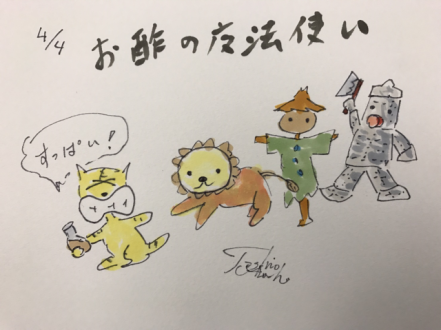 4/4
お酢の魔法使い
すっぱい!